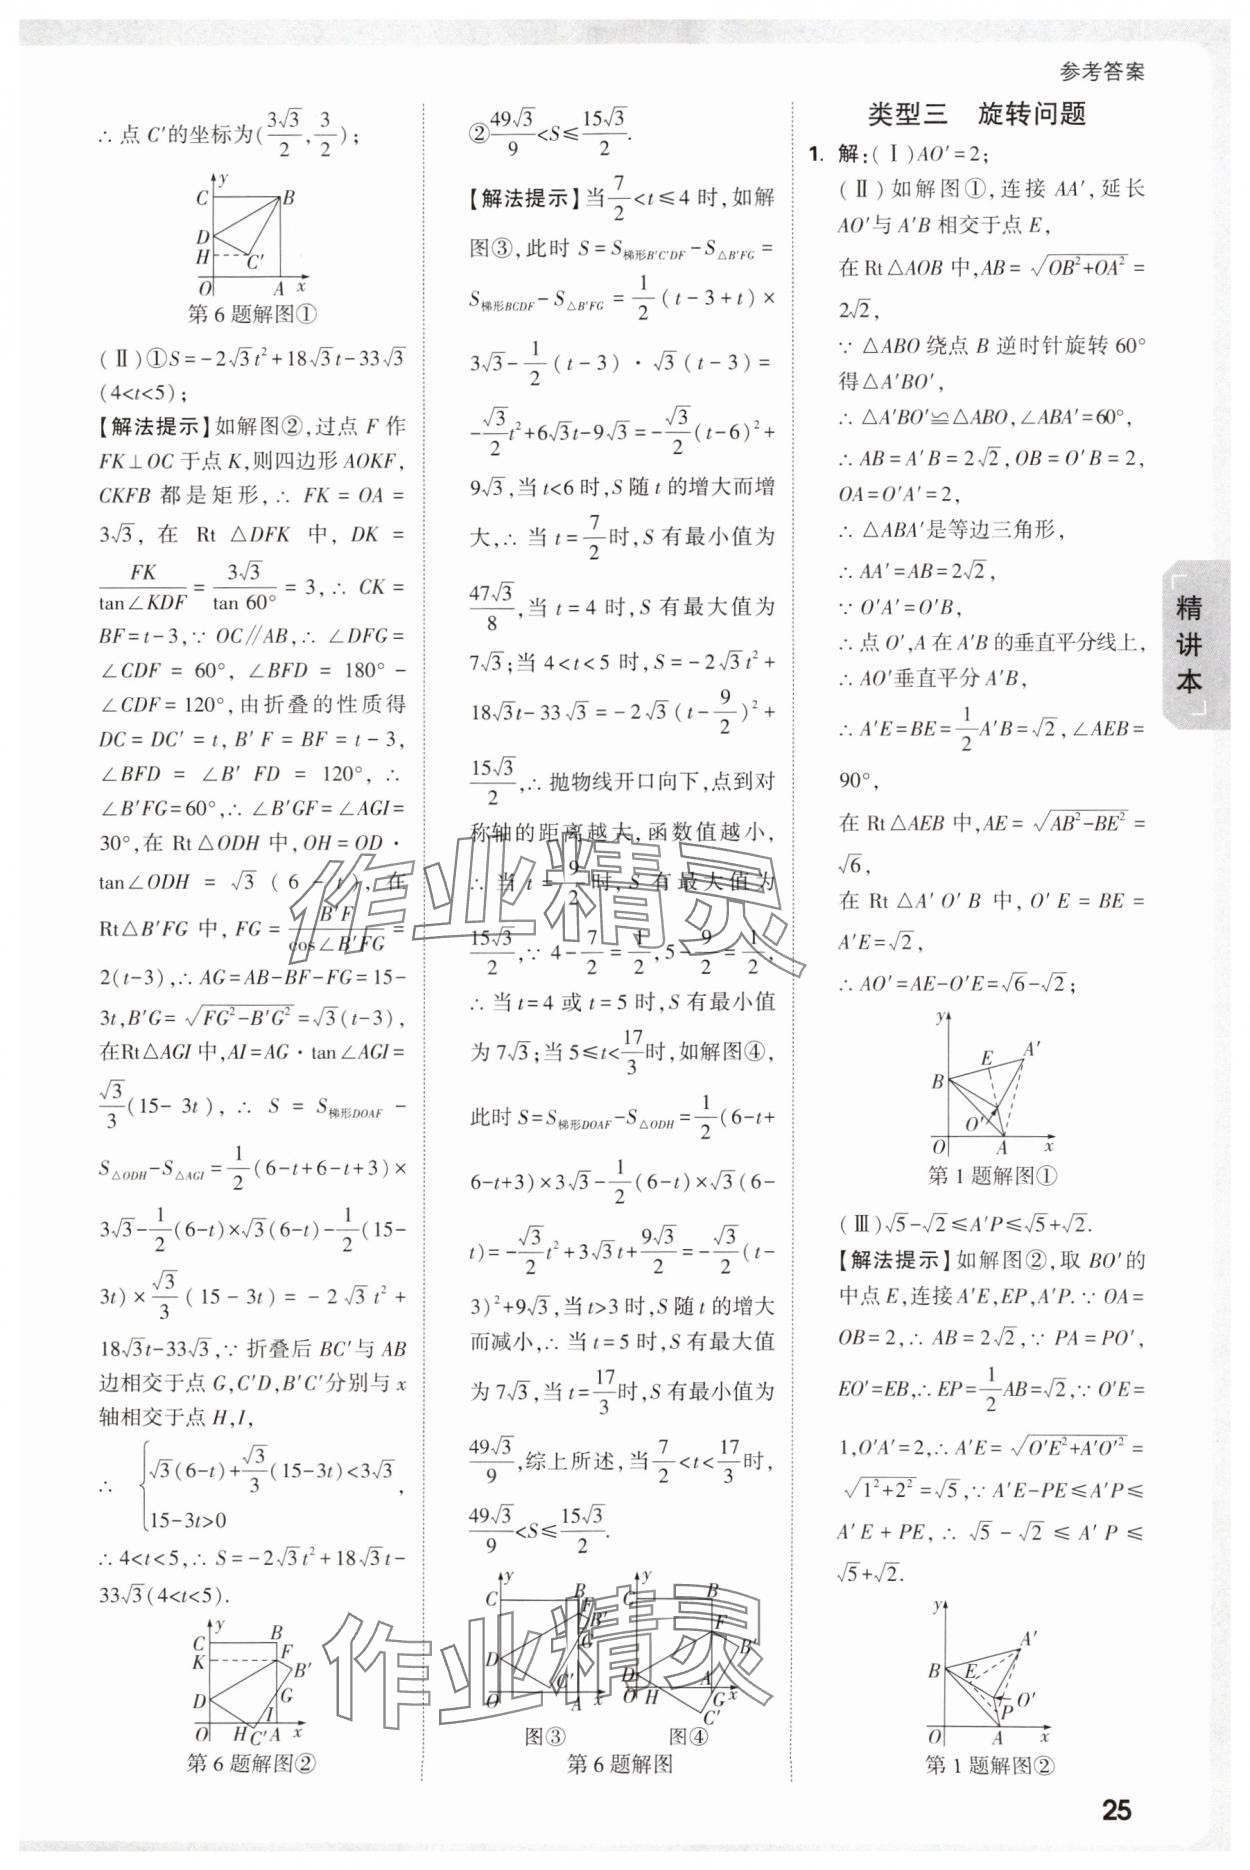 参考答案
∴点C′的坐标为(3√3/2,3/2);
C y B D H C′ O A x
第6题解图①
(Ⅱ)①S=-2√3t²+18√3t-33√3
(4<t<5);
【解法提示】如解图②,过点F作
FK⊥OC于点K,则四边形AOKF,
CKFB都是矩形,∴FK=OA=
3√3,在Rt△DFK中,DK=
FK/tan∠KDF=3√3/tan 60°=3,∴CK=
BF=t-3,∵OC∥AB,∴∠DFG=
∠CDF=60°,∠BFD=180°-
∠CDF=120°,由折叠的性质得
DC=DC′=t,B′F=BF=t-3,
∠BFD=∠B′FD=120°,∴
∠B′FG=60°,∴∠B′GF=∠AGI=
30°,在Rt△ODH中,OH=OD·
tan∠ODH=√3(6-t),在
Rt△B′FG中,FG=B′F/cos∠B′FG=
2(t-3),∴AG=AB-BF-FG=15-
3t,B′G=√(FG²-B′G²)=√3(t-3),
在Rt△AGI中,AI=AG·tan∠AGI=
√3/3(15-3t),∴S=S梯形DOAF-
S△ODH-S△AGI=1/2(6-t+6-t+3)×
3√3-1/2(6-t)×√3(6-t)-1/2(15-
3t)×√3/3(15-3t)=-2√3t²+
18√3t-33√3,∵折叠后BC′与AB
边相交于点G,C′D,B′C′分别与x
轴相交于点H,I,
∴{√3(6-t)+√3/3(15-3t)<3√3,
15-3t>0
∴4<t<5,∴S=-2√3t²+18√3t-
33√3(4<t<5).
y C B K F B′ D G I O H C′ A x
第6题解图②
②49√3/9<S≤15√3/2.
【解法提示】当7/2<t≤4时,如解
图③,此时S=S梯形B′C′DF-S△B′FG=
S梯形BCDF-S△B′FG=1/2(t-3+t)×
3√3-1/2(t-3)·√3(t-3)=
-√3/2t²+6√3t-9√3=-√3/2(t-6)²+
9√3,当t<6时,S随t的增大而增
大,∴当t=7/2时,S有最小值为
47√3/8,当t=4时,S有最大值为
7√3;当4<t<5时,S=-2√3t²+
18√3t-33√3=-2√3(t-9/2)²+
15√3/2,∴抛物线开口向下,点到对
称轴的距离越大,函数值越小,
∴当t=9/2时,S有最大值为
15√3/2,∵4-7/2=1/2,5-9/2=1/2,
∴当t=4或t=5时,S有最小值
为7√3;当5≤t<17/3时,如解图④,
此时S=S梯形DOAF-S△ODH=1/2(6-t+
6-t+3)×3√3-1/2(6-t)×√3(6-
t)=-√3/2t²+3√3t+9√3/2=-√3/2(t-
3)²+9√3,当t>3时,S随t的增大
而减小,∴当t=5时,S有最大值
为7√3,当t=17/3时,S有最小值为
49√3/9,综上所述,当7/2<t<17/3时,
49√3/9<S≤15√3/2.
y C B F B′ D C′ O A x
图③
y C B F B′ D A O H G x C′
图④
第6题解图
类型三 旋转问题
1. 解:(Ⅰ)AO′=2;
(Ⅱ)如解图①,连接AA′,延长
AO′与A′B相交于点E,
在Rt△AOB中,AB=√(OB²+OA²)=
2√2,
∵△ABO绕点B逆时针旋转60°
得△A′BO′,
∴△A′BO′≌△ABO,∠ABA′=60°,
∴AB=A′B=2√2,OB=O′B=2,
OA=O′A′=2,
∴△ABA′是等边三角形,
∴AA′=AB=2√2,
∵O′A′=O′B,
∴点O′,A在A′B的垂直平分线上,
∴AO′垂直平分A′B,
∴A′E=BE=1/2A′B=√2,∠AEB=
90°,
在Rt△AEB中,AE=√(AB²-BE²)=
√6,
在Rt△A′O′B中,O′E=BE=
A′E=√2,
∴AO′=AE-O′E=√6-√2;
y E A′ B O′ O A x
第1题解图①
(Ⅲ)√5-√2≤A′P≤√5+√2.
【解法提示】如解图②,取BO′的
中点E,连接A′E,EP,A′P.∵OA=
OB=2,∴AB=2√2,∵PA=PO′,
EO′=EB,∴EP=1/2AB=√2,∵O′E=
1,O′A′=2,∴A′E=√(O′E²+A′O′²)=
√(1²+2²)=√5,∵A′E-PE≤A′P≤
A′E+PE,∴√5-√2≤A′P≤
√5+√2.
y A′ B E O′ P O A x
第1题解图②
精讲本
25
作业精灵
作业精灵